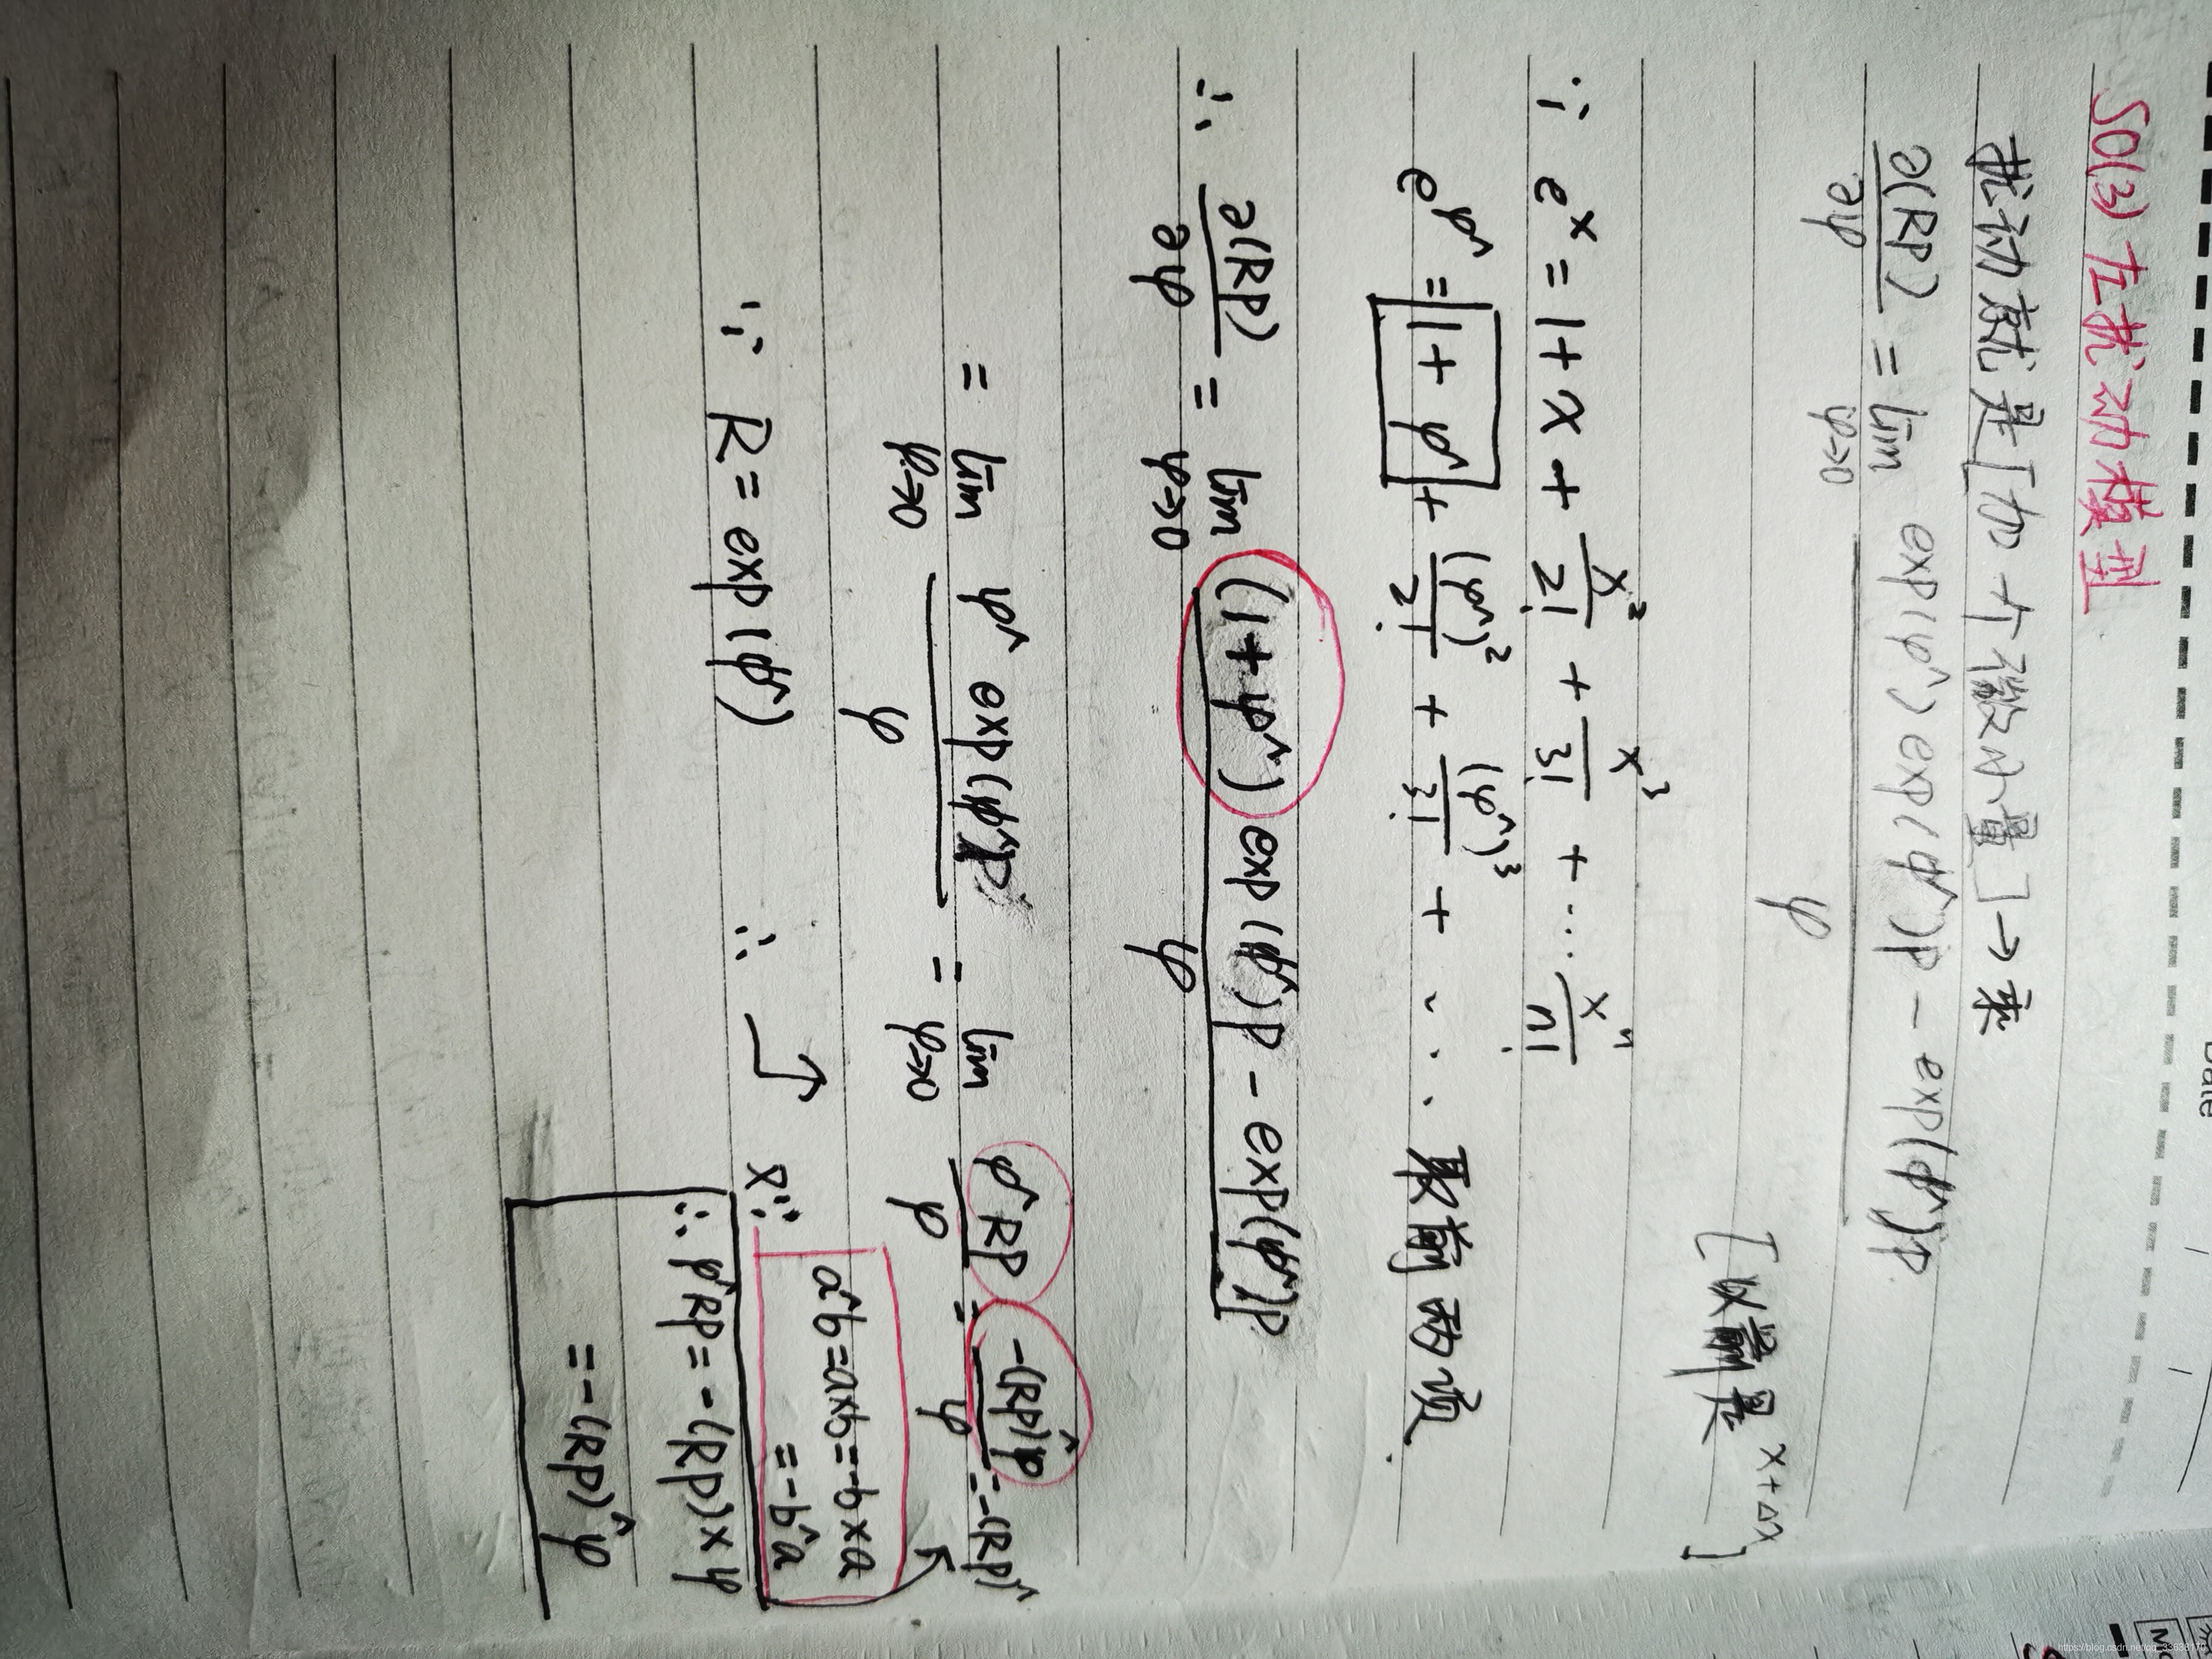 Date
SO(3) 左扰动模型
扰动就是[加个微小量]→乘
∂(Rp)/∂φ = lim φ→0 exp(φ^)exp(φ^)p - exp(φ^)p / φ
[以前是 x+Δx]
∵ e^x = 1 + x + x²/2! + x³/3! + ... x^n/n!
e^φ^ = 1 + φ^ + (φ^)²/2! + (φ^)³/3! + ... 取前两项.
∴ ∂(Rp)/∂φ = lim φ→0 (1+φ^)exp(φ^)p - exp(φ^)p / φ
= lim φ→0 φ^exp(φ^)p / φ = lim φ→0 φ^Rp / φ = -(Rp)^φ / φ = -(Rp)^
∵ R = exp(φ^) ∴
又∵ a^b = a×b = -b×a
= -b^a
∴ φ^Rp = -(Rp)×φ
= -(Rp)^φ